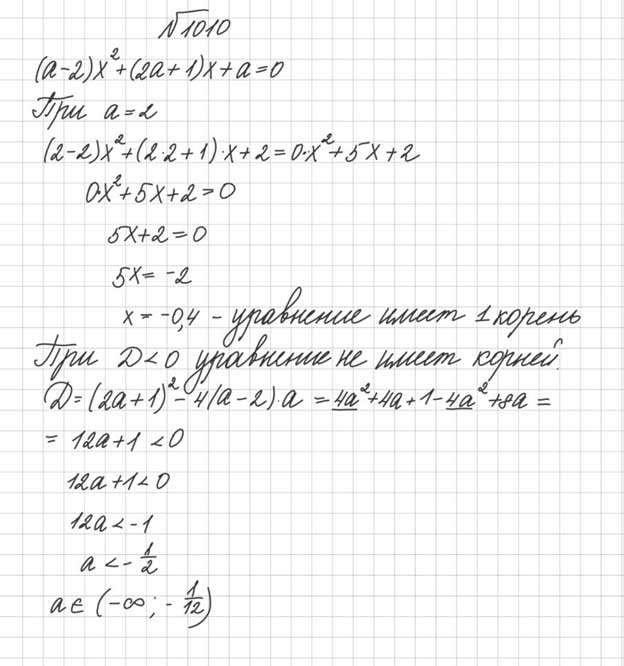 №1010
(a-2)x²+(2a+1)x+a=0
При a=2
(2-2)x²+(2·2+1)·x+2=0·x²+5x+2
0·x²+5x+2=0
5x+2=0
5x= -2
x= -0,4 - уравнение имеет 1 корень
При D<0 уравнение не имеет корней.
D=(2a+1)²-4(a-2)·a =4a²+4a+1-4a²+8a =
= 12a+1 <0
12a+1<0
12a<-1
a <- 1/2
a∈ (-∞; - 1/12)